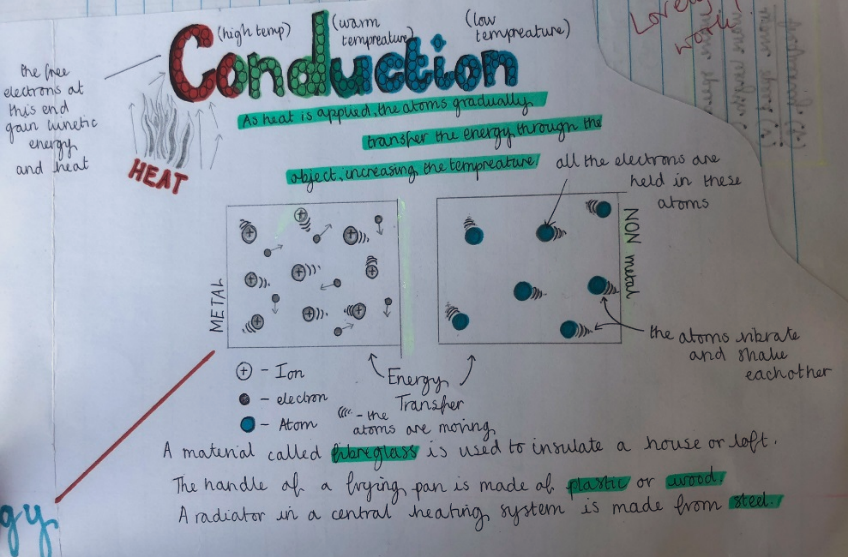 (high temp)
(warm
tempreature)
(low
tempreature)
Lovely
work
Conduction
the free
electrons at
this end
gain kinetic
energy
and heat
HEAT
As heat is applied, the atoms gradually
transfer the energy through the
object, increasing the tempreature
all the electrons are
held in these
atoms
METAL
NON metal
the atoms vibrate
and shake
eachother
+ - Ion
- electron
- Atom
Energy
Transfer
- the
atoms are moving
A material called fibreglass is used to insulate a house or loft.
The handle of a frying pan is made of plastic or wood.
A radiator in a central heating system is made from steel.
gy